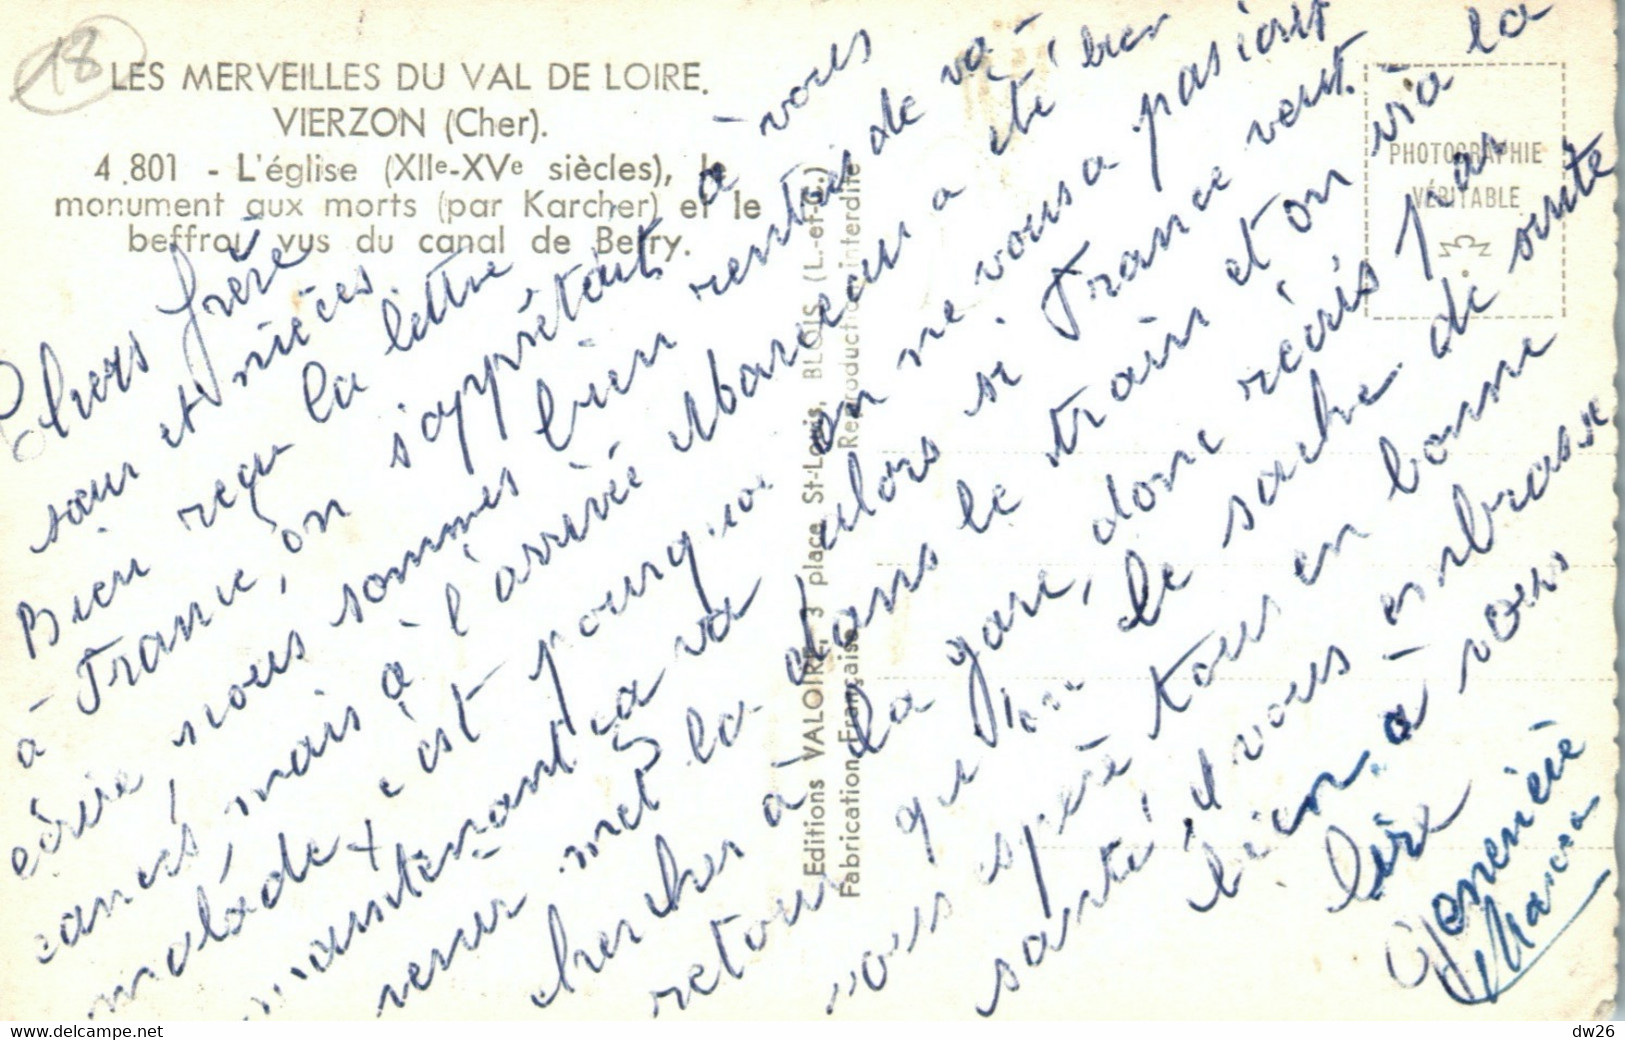 18
LES MERVEILLES DU VAL DE LOIRE.
VIERZON (Cher).
4.801 - L'église (XIIe-XVe siècles), le
monument aux morts (par Karcher) et le
beffroi vus du canal de Berry.
Editions VALOIRE, 3 place St-Louis, BLOIS (L.-et-C.)
Fabrication Française Reproduction interdite
PHOTOGRAPHIE
VÉRITABLE
Chers frère
sœur et nièces
Bien reçu la lettre
à France, on s'apprêtait à vous
écrire, nous sommes bien rentrés de va-
cances, mais à l'arrivée Marceau a été bien
malade, c'est pourquoi on ne vous a pas écrit
maintenant ça va alors si France veut
venir met la dans le train et on ira la
chercher à la gare, donc récris par
retour qu'on le sache de suite
vous espère tous en bonne
santé, et vous embrasse
bien à vous
lire
Genevieve
Marcea
dw26